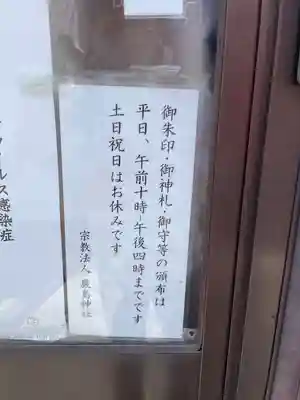 御朱印・御神札・御守等の頒布は
平日、午前十時~午後四時までです
土日祝日はお休みです
宗教法人 厳島神社
ルス感染症